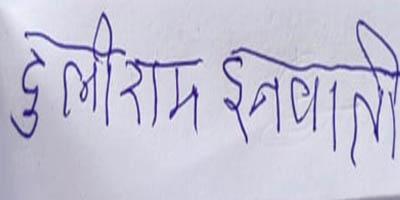 दुलीराम इनवाती